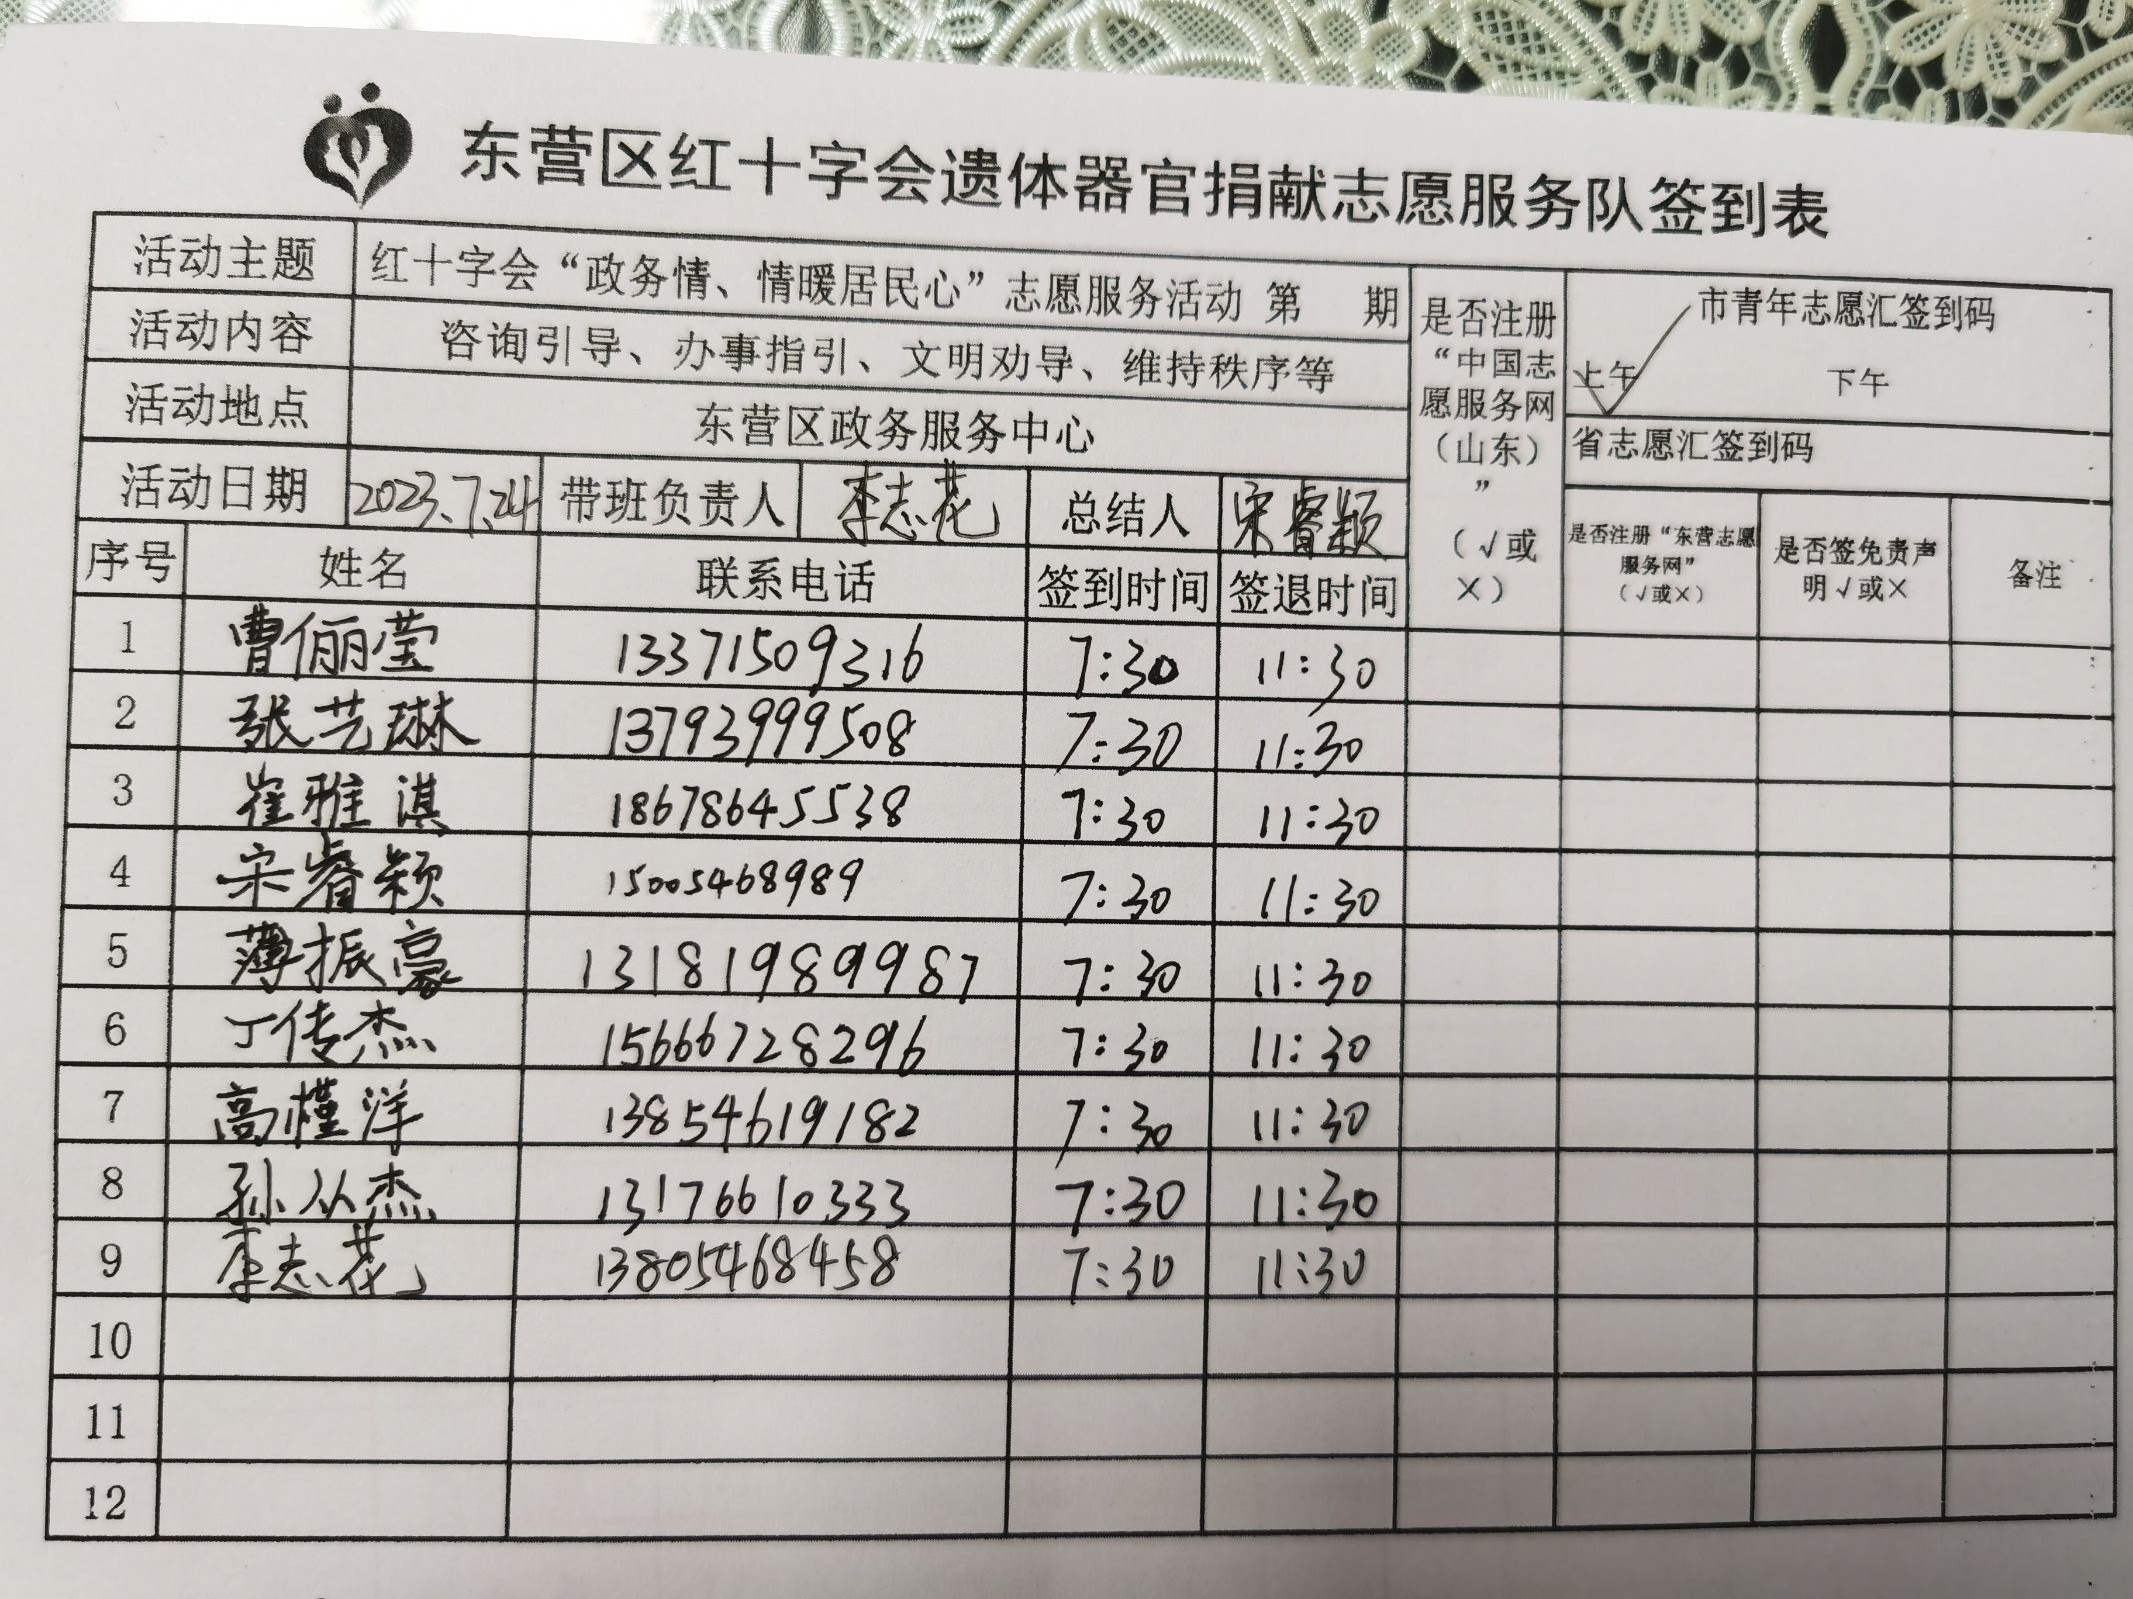 东营区红十字会遗体器官捐献志愿服务队签到表
活动主题 红十字会“政务情、情暖居民心”志愿服务活动 第 期
活动内容 咨询引导、办事指引、文明劝导、维持秩序等
活动地点 东营区政务服务中心
活动日期 2023.7.24 带班负责人 李志花 总结人 宋睿颖
是否注册
“中国志
愿服务网
（山东）
”
（√或
×）
市青年志愿汇签到码
上午 √ 下午
省志愿汇签到码
是否注册“东营志愿
服务网”
（√或×）
是否签免责声
明√或×
备注
序号 姓名 联系电话 签到时间 签退时间
1 曹俪莹 13371509316 7:30 11:30
2 张艺琳 13793999508 7:30 11:30
3 崔雅淇 18678645538 7:30 11:30
4 宋睿颖 15005468989 7:30 11:30
5 薄振豪 13181989987 7:30 11:30
6 丁传杰 15666728296 7:30 11:30
7 高槿洋 13854619182 7:30 11:30
8 孙从杰 13176610333 7:30 11:30
9 李志花 13805468458 7:30 11:30
10
11
12